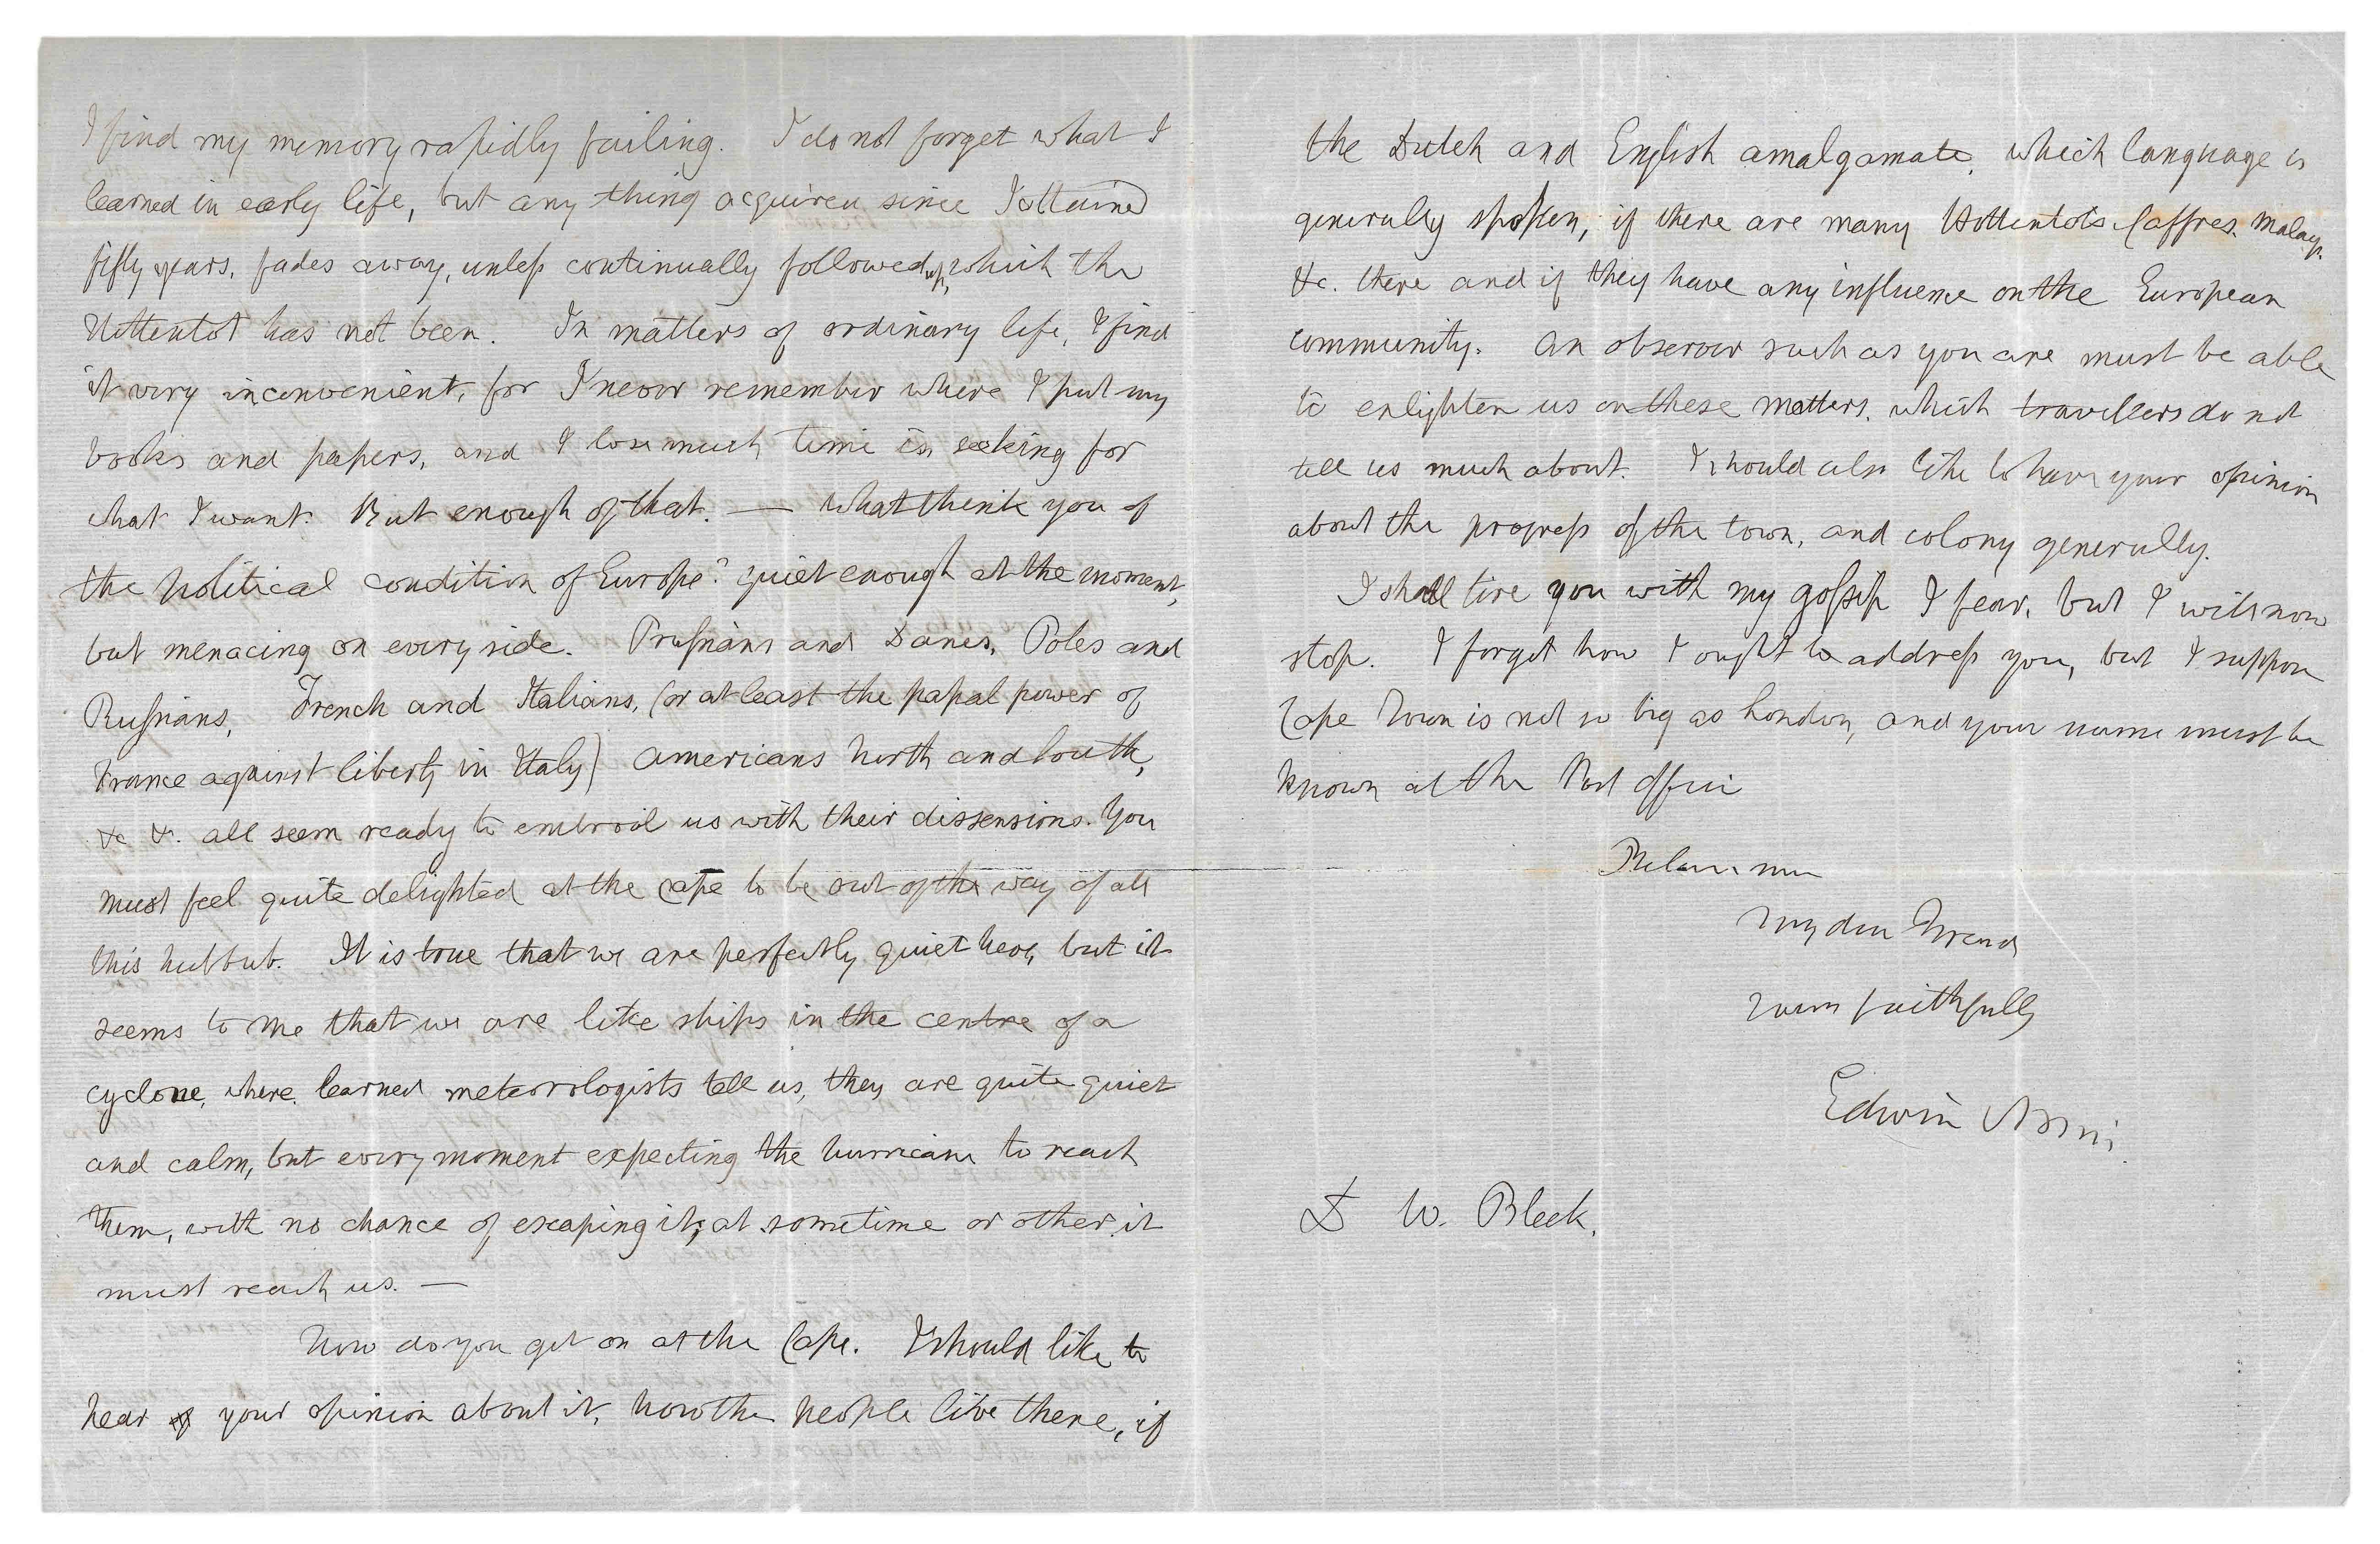 I find my memory rapidly failing. I do not forget what I
learned in early life, but any thing acquired since I attained
fifty years, fades away, unless continually followed up, which the
Hottentot has not been. In matters of ordinary life, I find
it very inconvenient, for I never remember where I put my
books and papers, and I lose much time in seeking for
what I want. But enough of that. — What think you of
the political condition of Europe? quiet enough at the moment,
but menacing on every side. Prussians and Danes, Poles and
Russians, French and Italians, (or at least the papal power of
France against liberty in Italy) Americans North and South,
&c &c. all seem ready to embroil us with their dissensions. You
must feel quite delighted at the Cape to be out of the way of all
this hubbub. It is true that we are perfectly quiet here, but it
seems to me that we are like ships in the centre of a
cyclone, where, learned meteorologists tell us, they are quite quiet
and calm, but every moment expecting the hurricane to reach
them, with no chance of escaping it; at sometime or other it
must reach us. —
How do you get on at the Cape. I should like to
hear of your opinion about it, how the people live there, if
the Dutch and English amalgamate, which language is
generally spoken, if there are many Hottentots Caffres, Malays,
&c. there and if they have any influence on the European
community. An observer such as you are must be able
to enlighten us on these matters, which travellers do not
tell us much about. I should also like to have your opinion
about the progress of the town, and colony generally.
I shall tire you with my gossip I fear, but I will now
stop. I forget how I ought to address you, but I suppose
Cape Town is not so big as London, and your name must be
known at the Post Office
Believe me
My dear Friend
Yours faithfully
Edwin Norris
D W. Bleek.